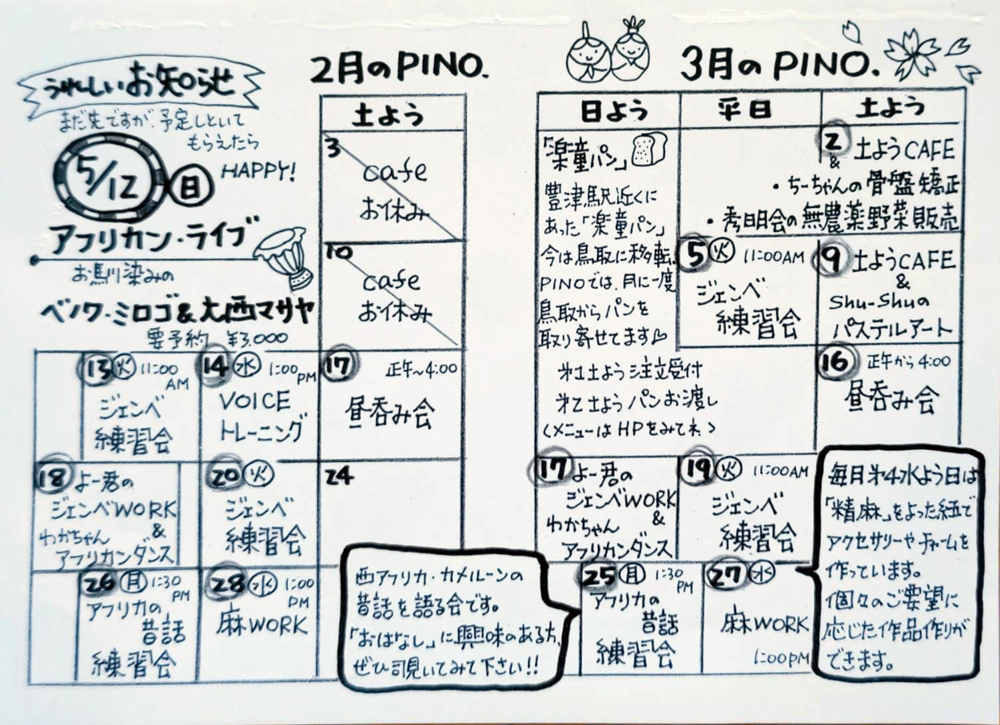 うれしいお知らせ
まだ先ですが、予定しといて
もらえたら
5/12 日
HAPPY!
アフリカン・ライブ
お馬川染みの
ベノワ・ミロゴ&大西マサヤ
要予約 ¥3,000
2月のPINO.
土よう
3
cafe
お休み
10
cafe
お休み
13 火 11:00 AM
ジェンベ
練習会
14 水 1:00 PM
VOICE
トレーニング
17 正午~4:00
昼呑み会
18 よー君の
ジェンベWORK
&
わかちゃん
アフリカンダンス
20 火
ジェンベ
練習会
24
26 月 1:30 PM
アフリカの
昔話
練習会
28 水 1:00 PM
麻WORK
西アフリカ・カメルーンの
昔話を語る会です。
「おはなし」に興味のある方、
ぜひ覗いてみて下さい!!
3月のPINO.
日よう 平日 土よう
「楽童パン」
豊津駅近くに
あった「楽童パン」
今は鳥取に移転。
PINOでは、月に一度
鳥取からパンを
取り寄せてます♪
第1土よう 注文受付
第2土よう パンお渡し
(メニューはHPをみてね)
2 土ようCAFE
&
・ちーちゃんの骨盤矯正
・秀明会の無農薬野菜販売
5 火 11:00AM
ジェンベ
練習会
9 土ようCAFE
&
Shu-Shuの
パステルアート
16 正午から4:00
昼呑み会
17 よー君の
ジェンベWORK
&
わかちゃん
アフリカンダンス
19 火 11:00AM
ジェンベ
練習会
25 月 1:30 PM
アフリカの
昔話
練習会
27 水
麻WORK
1:00PM
毎月第4水よう日は
「精麻」をよった紐で
アクセサリーやチャームを
作っています。
個々のご要望に
応じた作品作りが
できます。